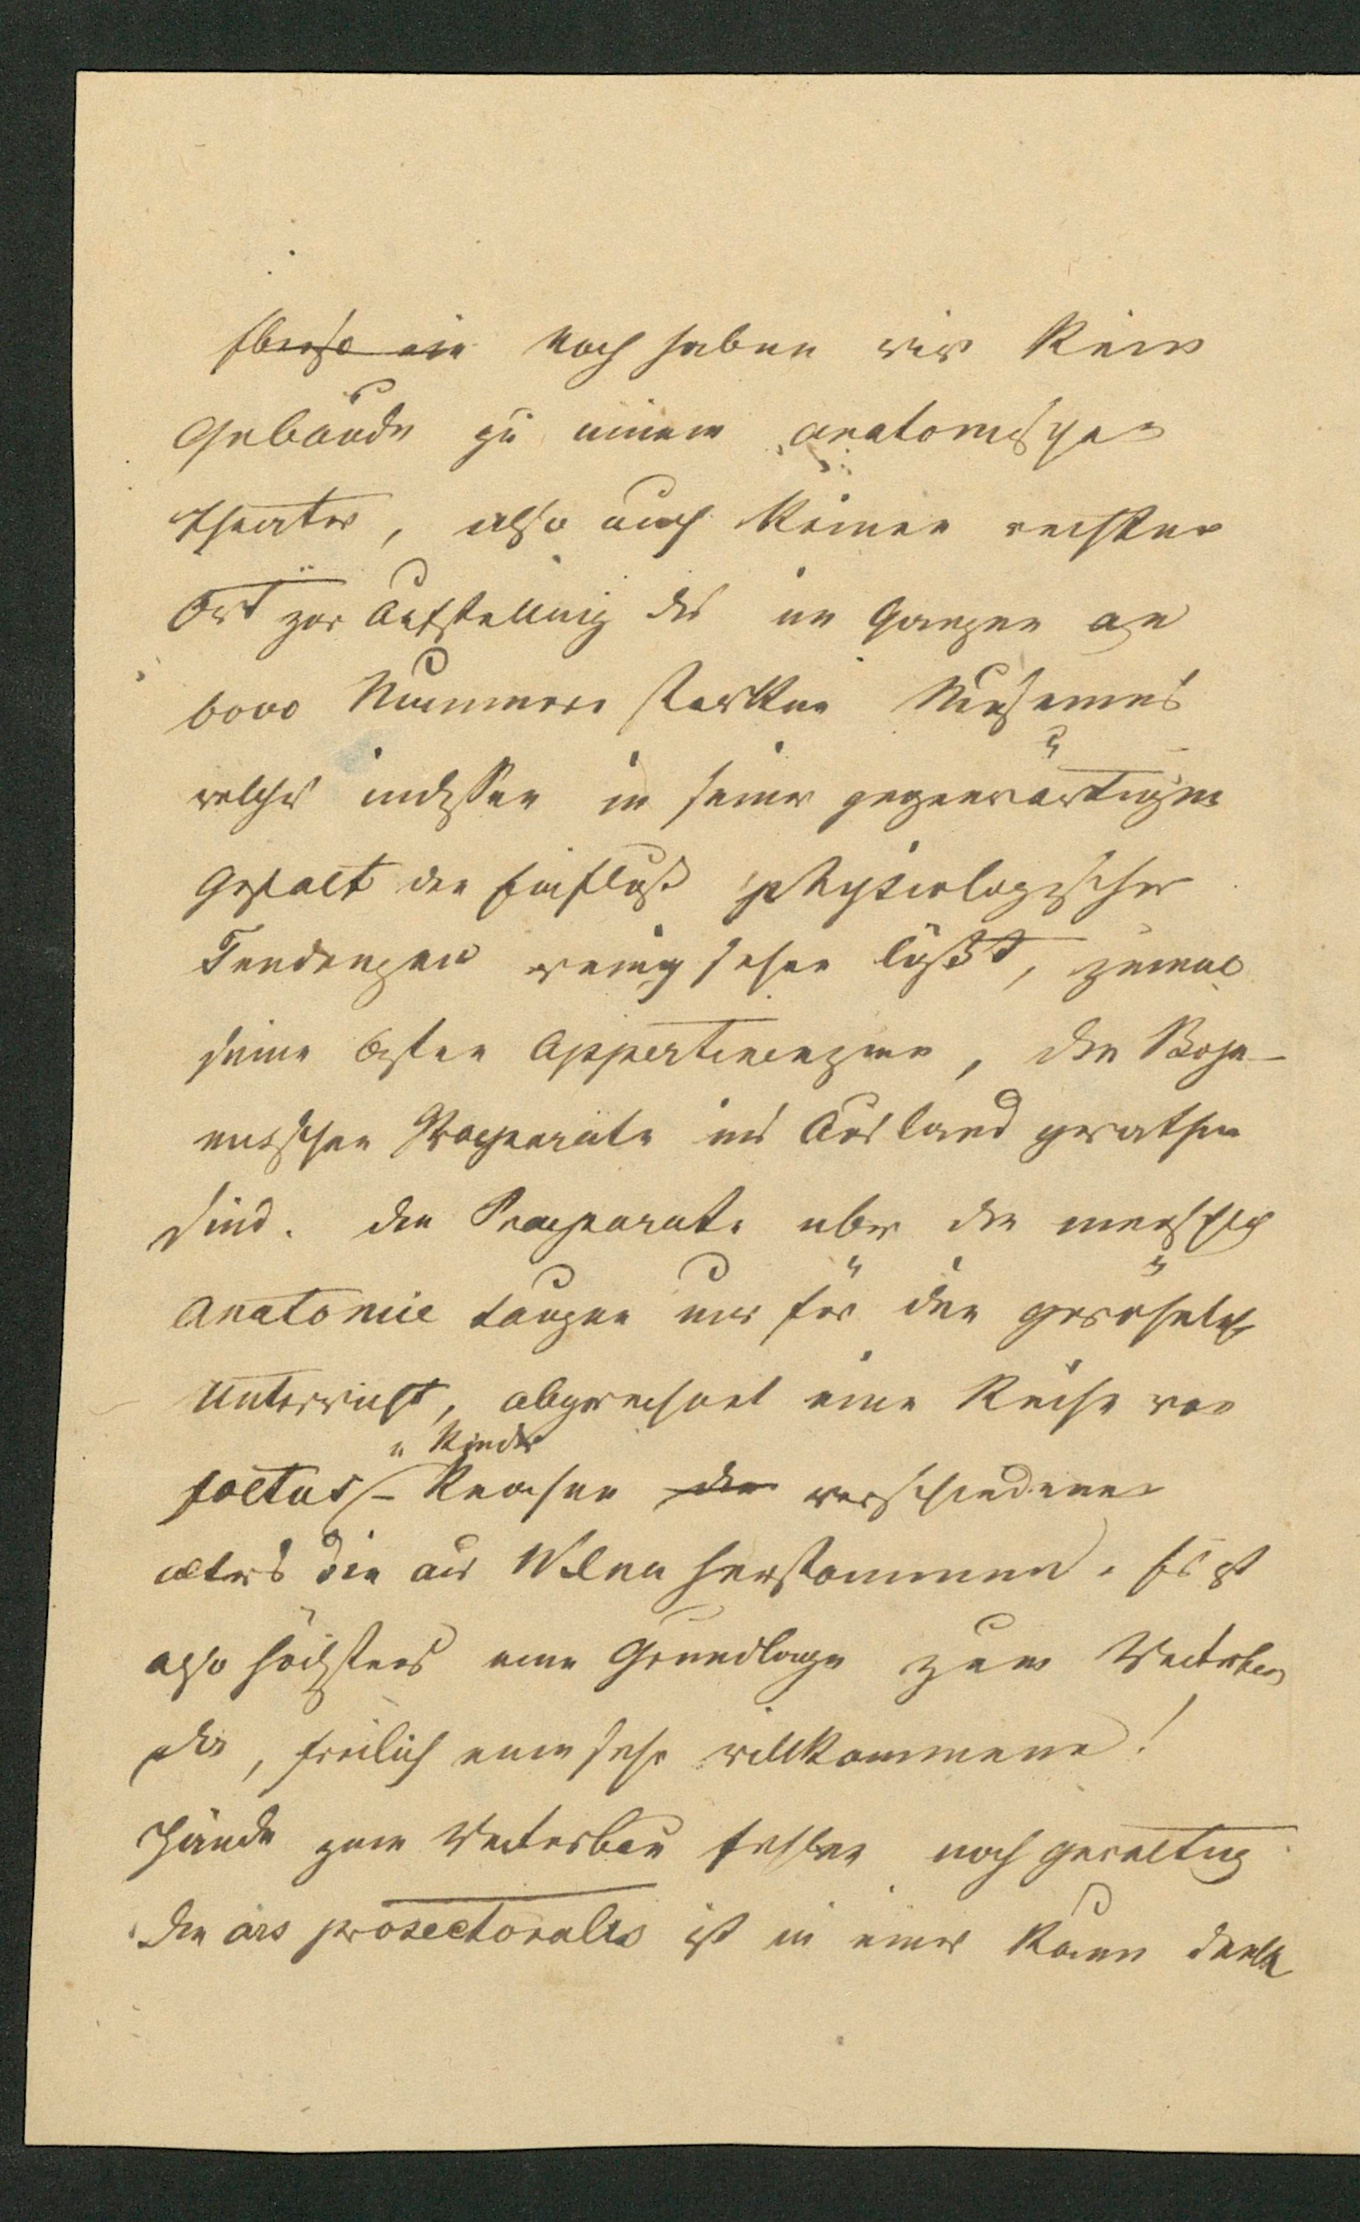 Ebenso ein Noch haben wir kein
Gebäude zu einem anatomischen
Theater, also auch keinen rechten
Ort zur Aufstellung des im Ganzen an
6000 Nummern starken Museums
welches indessen in seiner gegenwärtigen
Gestalt den Einfluß physiologischer
Tendenzen wenig sehen läßt, zumal
seine besten Appertinenzien, die Boja-
nusschen Praeparate ins Ausland gerathen
sind. Die Praeparate über die menschlich
Anatomie taugen nur für den gewöhnlich
Unterricht, abgerechnet eine Reihe von
u Kinder
foetus- Knochen der verschiedenen
Alters die aus Wilna herstammen. Es ist
also höchstens eine Grundlage zum Weiterbau
da, freilich eine sehr willkommene!
Hände zum Weiterbau fehlen noch gewaltig
Die ars prosectoralis ist in einer kaum denk